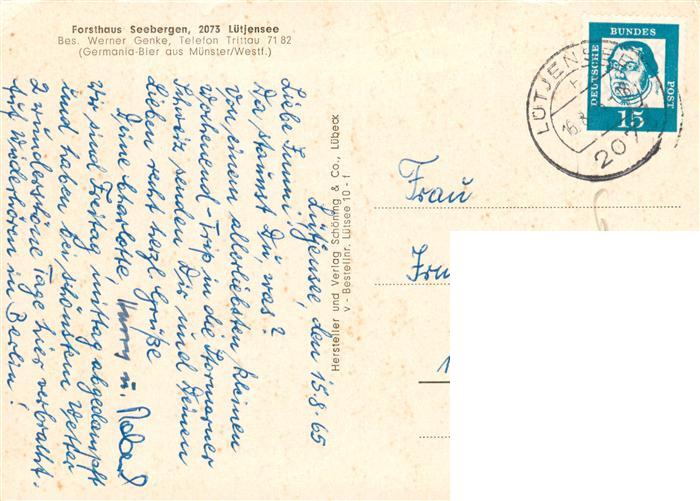 Forsthaus Seebergen, 2073 Lütjensee
Bes. Werner Genke, Telefon Trittau 71 82
(Germania-Bier aus Münster/Westf.)
Lütjensee, den 15.8.65
Liebe Immi!
Da staunst Du, was?
Von einem allerliebsten kleinen
Wochenend-Trip in die Stormarner
Schweiz senden Dir und Deinen
Lieben recht herzl. Grüße
Deine Charlotte, Harry u. Robert
Wir sind Freitag mittag abgedampft
und haben bei schönstem Wetter
2 wunderschöne Tage hier verbracht.
Auf Wiederhören in Berlin!
Hersteller und Verlag Schöning & Co., Lübeck
V - Bestellnr. Lütsee 10 - f
DEUTSCHE
BUNDES
POST
15
LÜTJENSEE
16.8
207
Frau